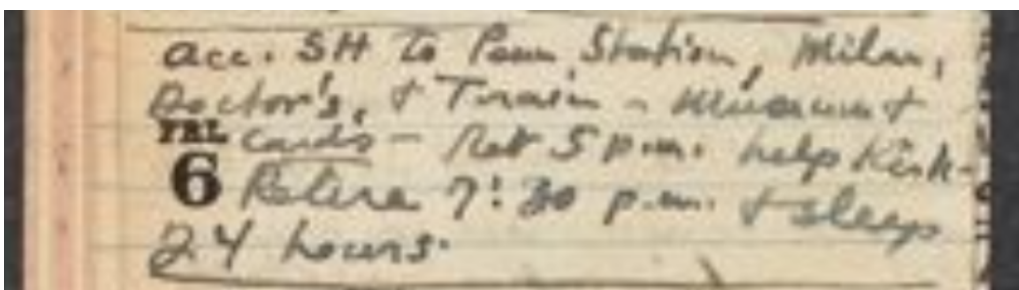 acc. SH to Penn Station, Milan,
Doctor's, & Train - Museum &
FRI. cards - Ret 5 p.m. help Kirk-
6 Retire 7:30 p.m. & sleep
24 hours.